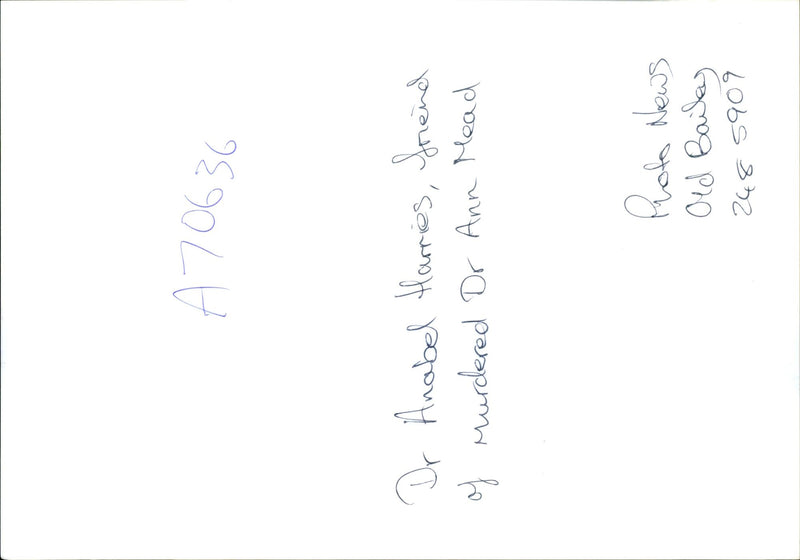 A70636
Dr Anabel Harries, friend
of murdered Dr Ann Mead
Photo News
Old Bailey
248 5909